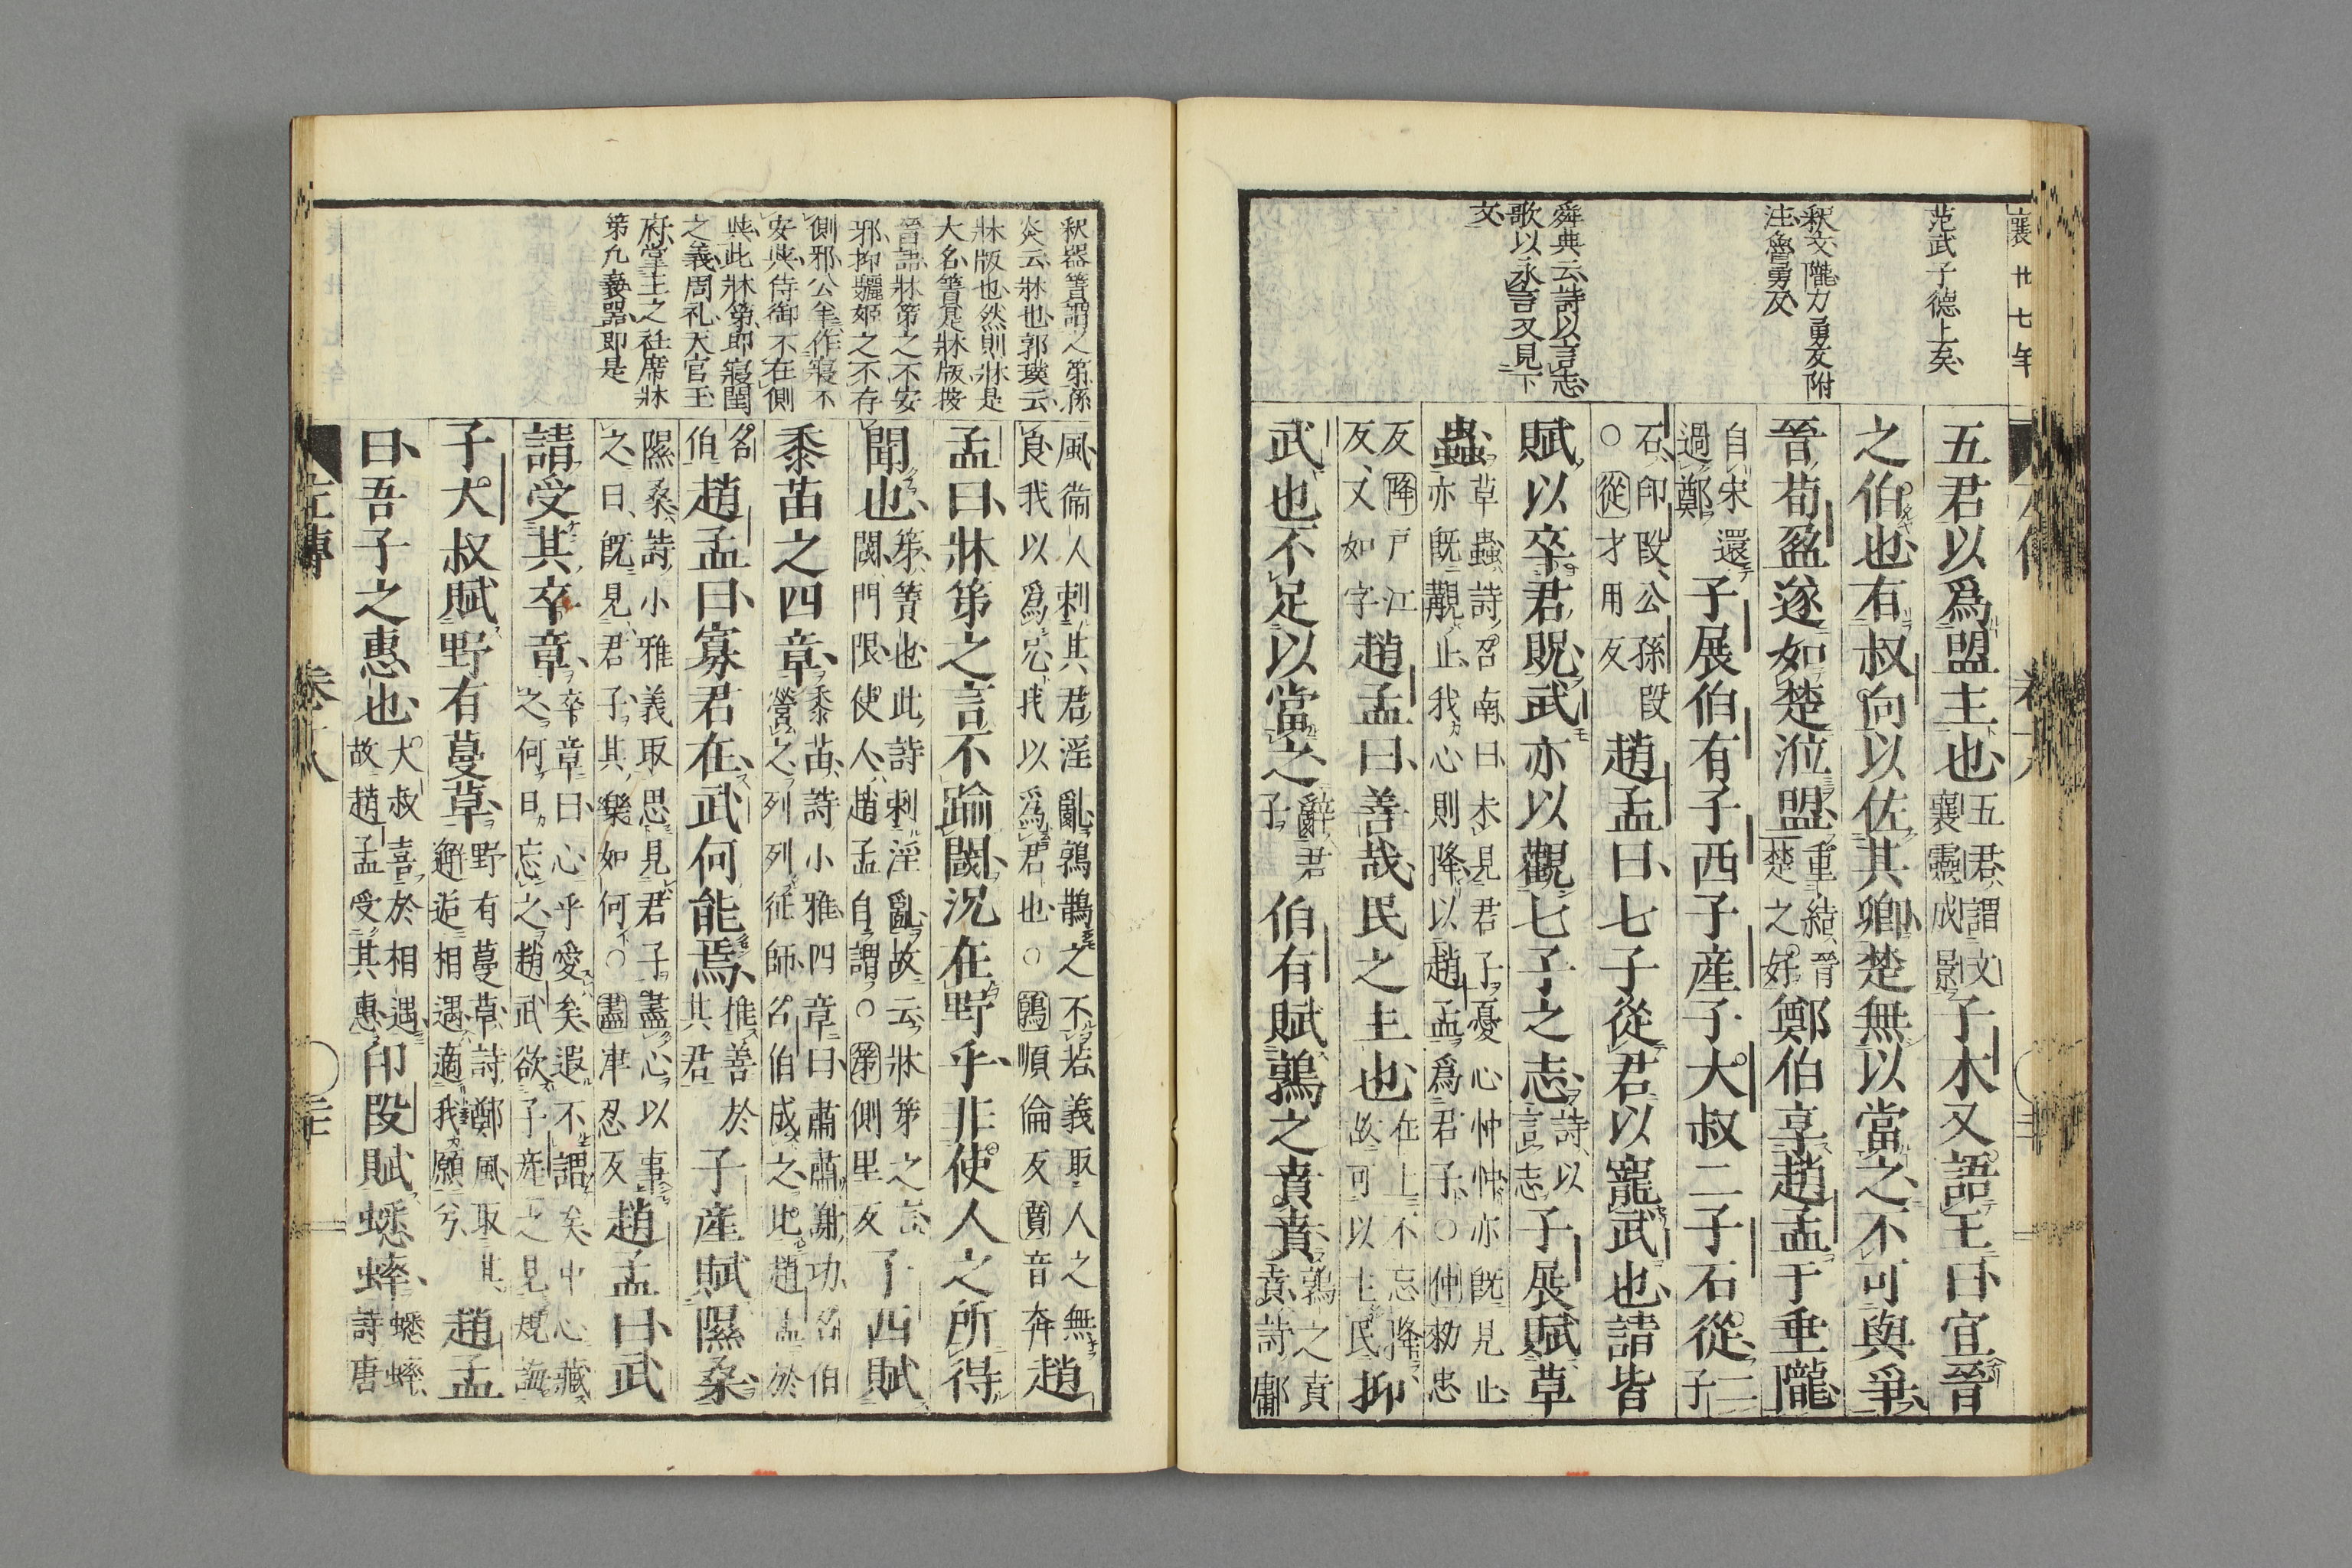 襄廿七年
范武子德上矣
釈文隴力勇反附
注魯勇反
舜典云詩以言志
歌以永言又見下
文
五君以爲盟主也五君謂文襄靈成景子木又語王曰宜晉
之伯也有叔向以佐其卿楚無以當之不可與爭
晉荀盈遂如楚涖盟重結晉楚之好鄭伯享趙孟于垂隴
自宋還過鄭子展伯有子西子産子大叔二子石從二子
石印段公孫段○從才用反趙孟曰七子從君以寵武也請皆
賦以卒君貺武亦以觀七子之志詩以言志子展賦草
蟲草蟲詩召南曰未見君子憂心忡忡亦既見止亦既覯止我心則降以趙孟爲君子○忡勑忠
反降戸江反又如字趙孟曰善哉民之主也在上不忘降故可以主民抑
武也不足以當之辭君子伯有賦鶉之賁賁鶉之賁賁詩鄘
釈器簀謂之第孫
炎云牀也郭璞云
牀版也然則牀是
大名簀是牀版按
晉語牀第之不安
邪抑驪姬之不存
側邪公羊作寢不
安與侍御不在側
與此牀第即寢閨
之義周礼天官玉
府掌王之衽席牀
第凡褻器即是
風衞人刺其君淫亂鶉鵲之不若義取人之無良我以爲兄我以爲君也○鶉順倫反賁音奔趙
孟曰牀第之言不踰閾況在野乎非使人之所得
聞也第簀也此詩刺淫亂故云牀第之言閾門限使人趙孟自謂○第側里反子西賦
黍苗之四章黍苗詩小雅四章曰肅肅謝功召伯營之列列征師召伯成之比趙孟於
召伯趙孟曰寡君在武何能焉推善於其君子産賦隰桑
隰桑詩小雅義取思見君子盡心以事之曰既見君子其樂如何○盡津忍反趙孟曰武
請受其卒章卒章曰心乎愛矣遐不謂矣中心藏之何日忘之趙武欲子産之見規誨
子大叔賦野有蔓草野有蔓草詩鄭風取其邂逅相遇適我願兮趙孟
曰吾子之惠也大叔喜於相遇故趙孟受其惠印段賦蟋蟀蟋蟀詩唐
左傳